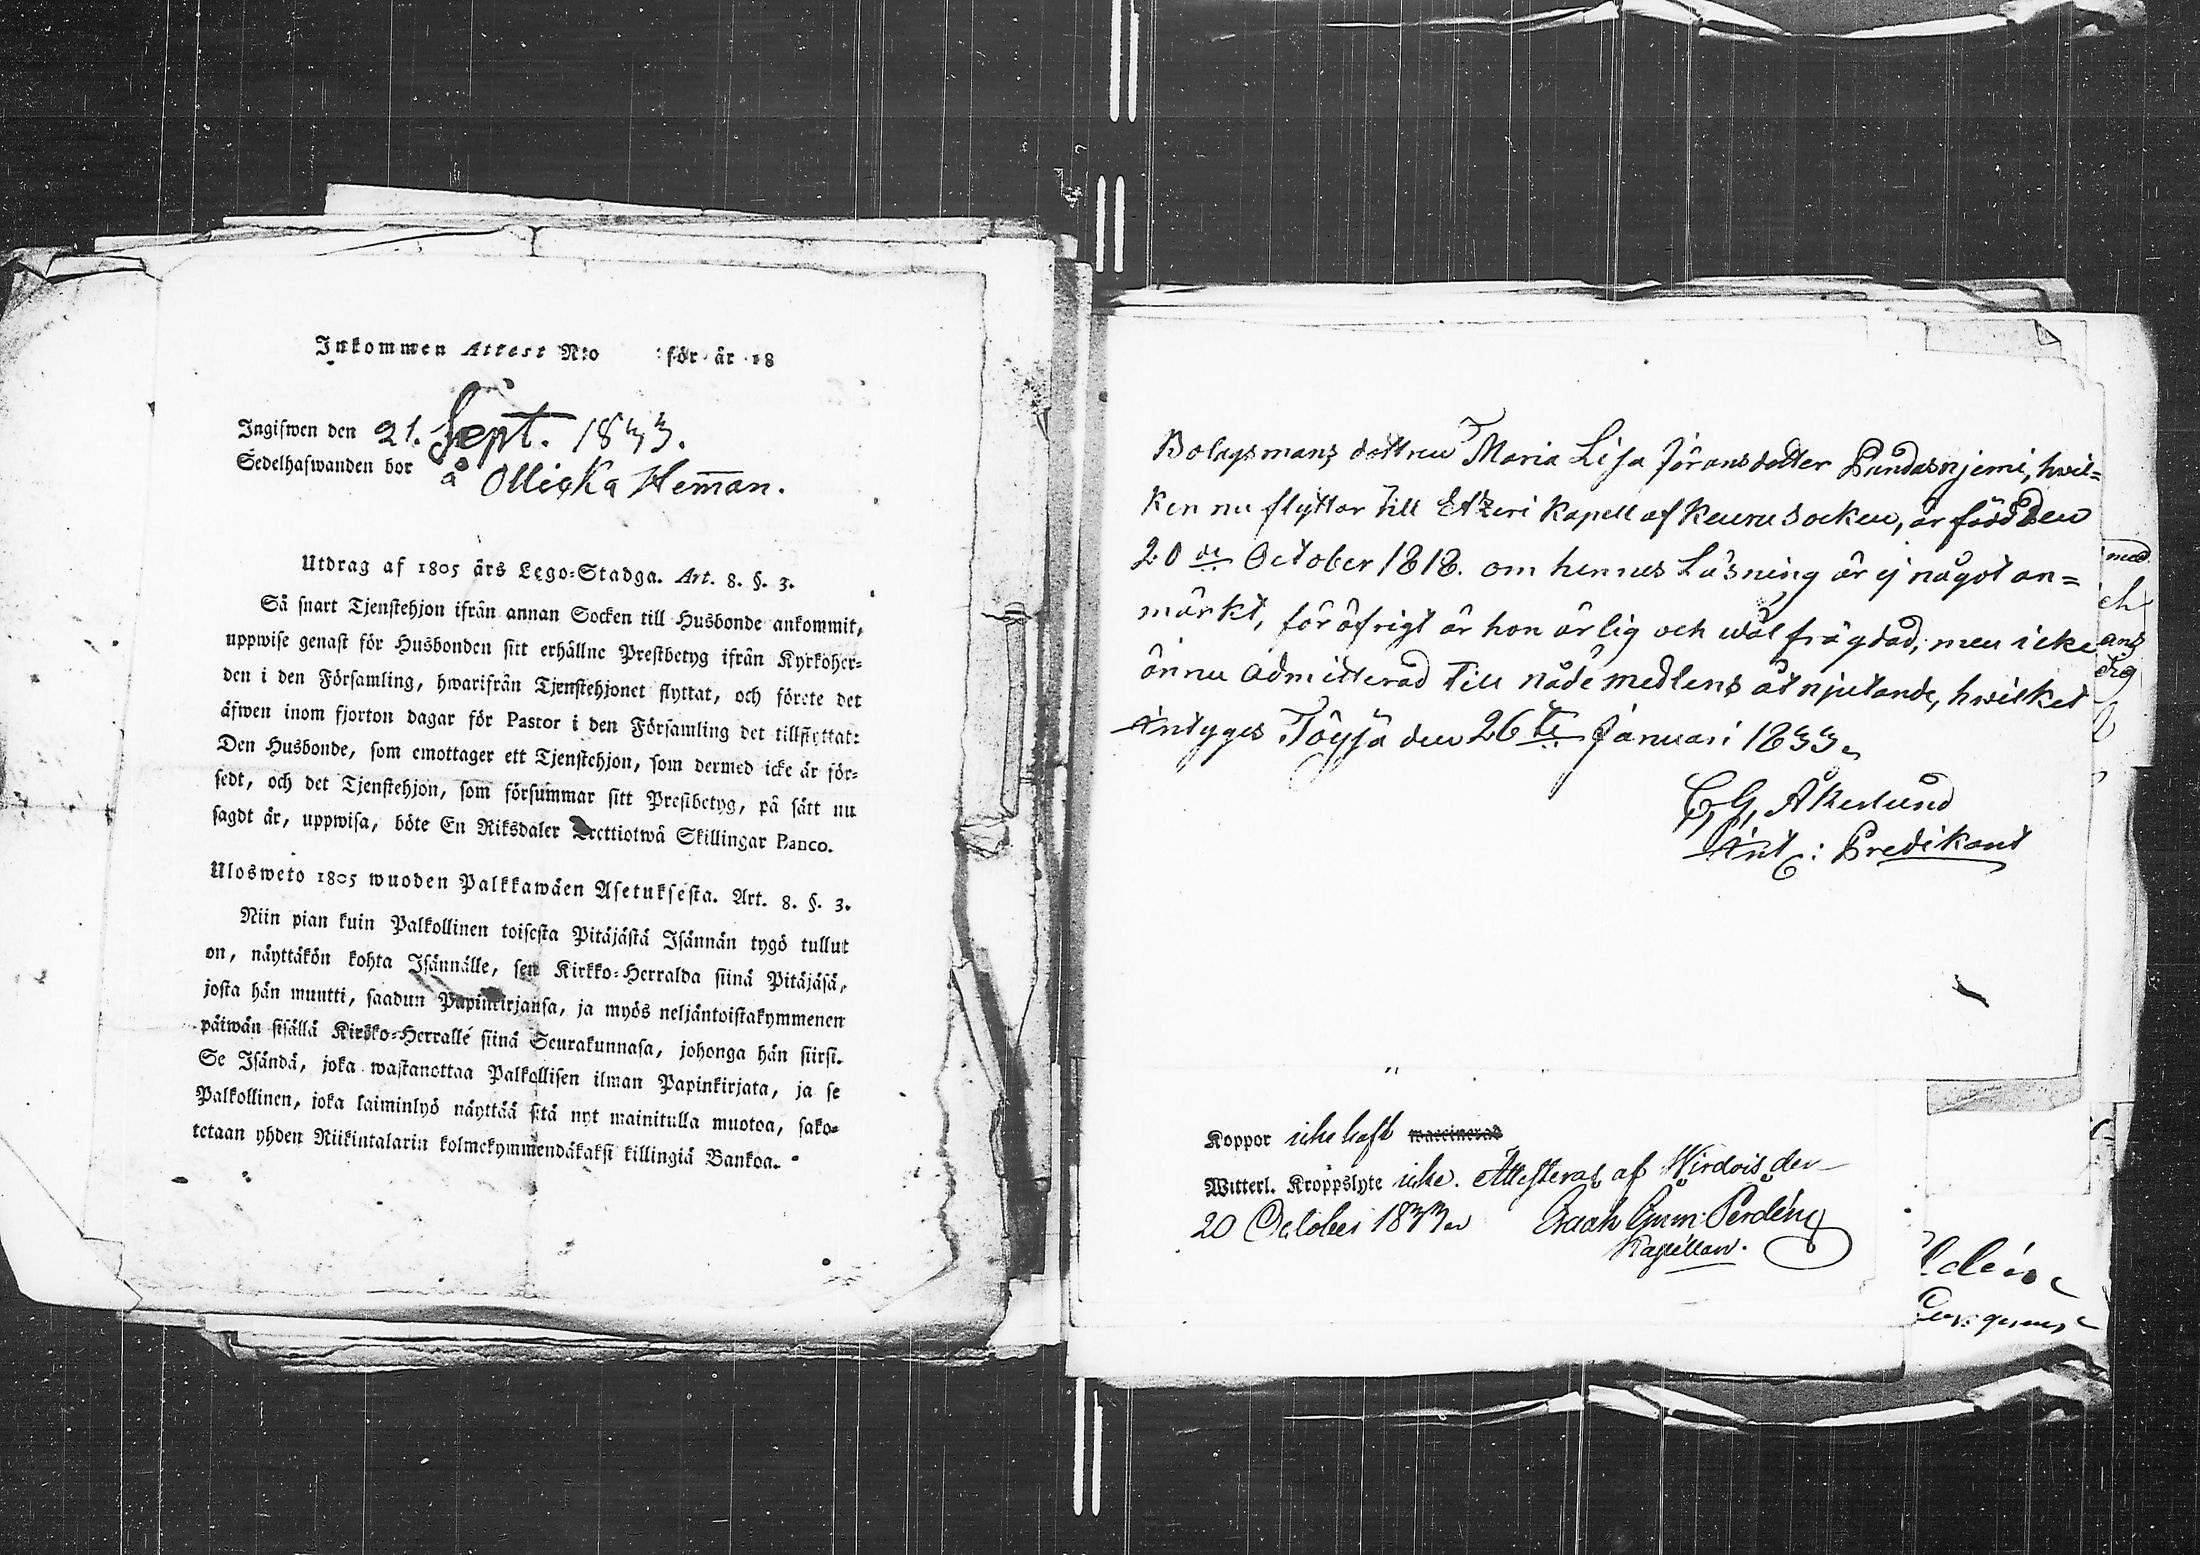 Inkommen Attest N:o för år 18
Ingifwen den 21. Sept. 1833.
Sedelhafwanden bor å Ollicka Hem̄an.
Utdrag af 1805 års Lego-Stadga. Art. 8. §. 3.
Så snart Tjenstehjon ifrån annan Socken till Husbonde ankommit,
uppwise genast för Husbonden sitt erhållne Prestbetyg ifrån Kyrkoher-
den i den Församling, hwarifrån Tjenstehjonet flyttat, och förete det
äfwen inom fjorton dagar för Pastor i den Församling det tillflyttat:
Den Husbonde, som emottager ett Tjenstehjon, som dermed icke är för-
sedt, och det Tjenstehjon, som försummar sitt Prestbetyg, på sätt nu
sagdt är, uppwisa, böte En Riksdaler Trettiotwå Skillingar Banco.
Ulosweto 1805 wuoden Palkkawäen Asetuksesta. Art. 8. §. 3.
Niin pian kuin Palkollinen toisesta Pitäjästä Isännän tygö tullut
on, näyttäkön kohta Isännälle, sen Kirkko-Herralda siinä Pitäjäsä,
josta hän muutti, saadun Papinkirjansa, ja myös neljäntoistakymmenen
päiwän sisällä Kirkko-Herralle siinä Seurakunnasa, johonga hän siirsi.
Se Isändä, joka wastanottaa Palkollisen ilman Papinkirjata, ja se
Palkollinen, joka laiminlyö näyttää sitä nyt mainitulla muotoa, sako-
tetaan yhden Riikintalarin kolmekymmendäkaksi killingiä Bankoa.
Bolagsmans dottren Maria Lisa Jöransdotter Pundasnjemi, hwil-
ken nu flyttar till Etzeri Kapell af Keuru socken, är född den
20de October 1818. om hennes Läsning är ej något an=
märkt, för öfrigt är hon ärlig och wäl frägdad, men icke
ännu admitterad till nådemedlens åtnjutande, hwilket
intygges Töysä den 26te Januari 1833.
C. G. Åkerlund
Predikant
Koppor icke haft waccinerad
Witterl. Kroppslyte icke. Attesteras af Wirdois den
20 October 1833
Kapellan.